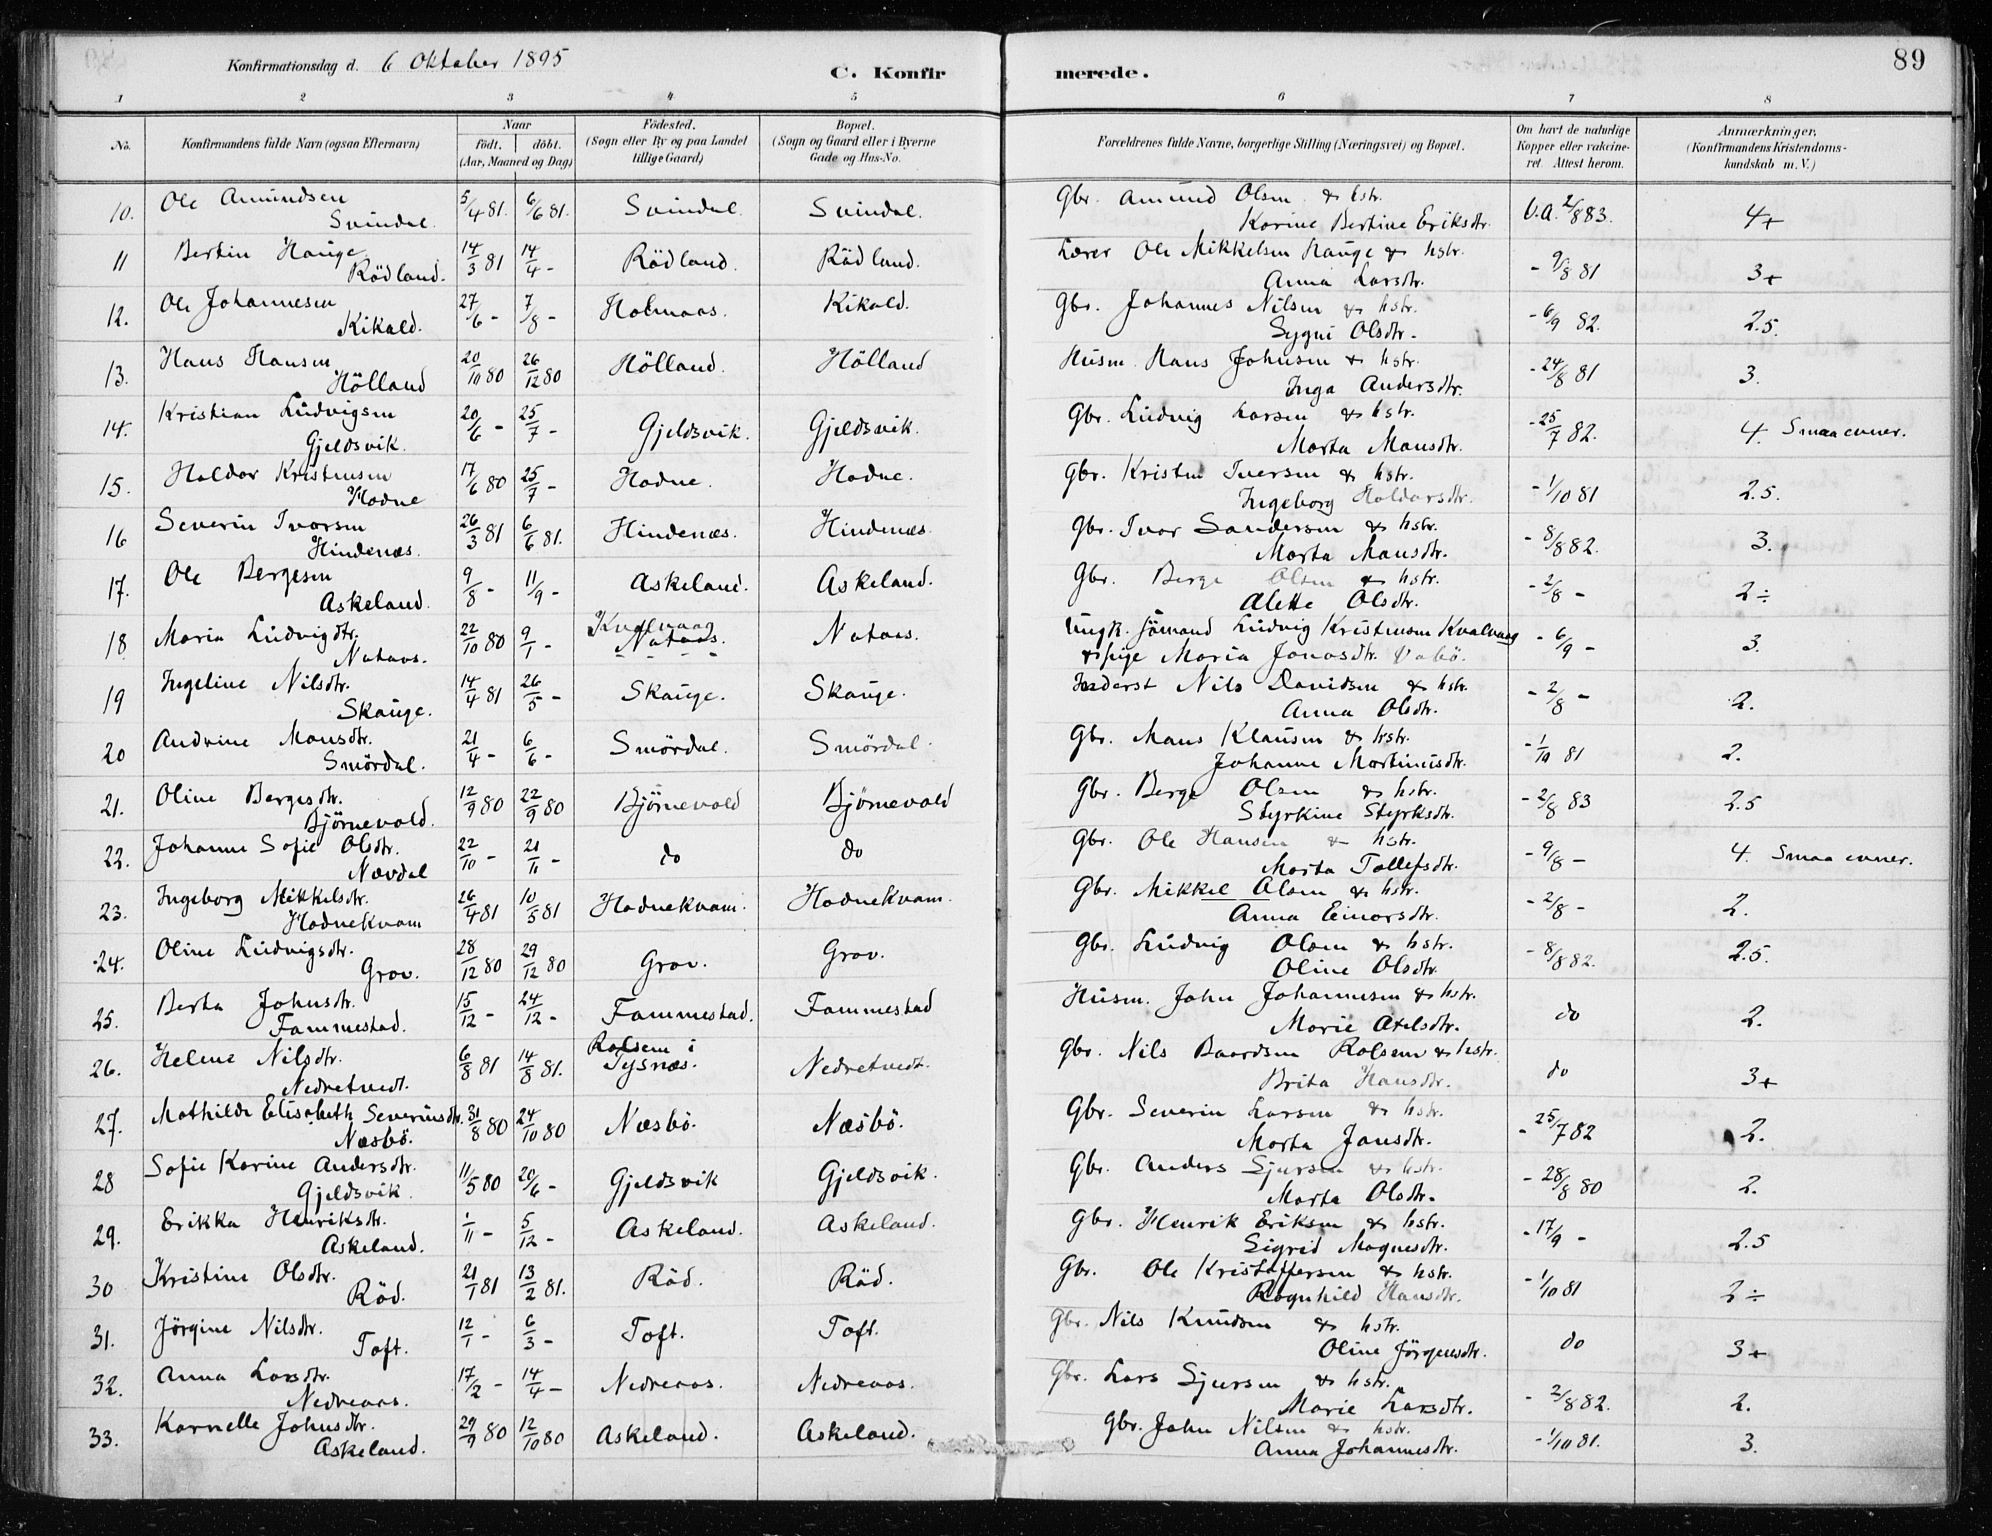 89
Konfirmationsdag d. 6 Oktober 1895
C. Konfirmerede.
1 2 3 4 5 6 7 8
No. Konfirmandens fulde Navn (ogsaa Efternavn) Naar födt. döbt. (Aar, Maaned og Dag) Födested. (Sogn eller By og paa Landet tillige Gaard) Bopæl. (Sogn og Gaard eller i Byerne Gade og Hus-No. Forældrenes fulde Navne, borgerlige Stilling (Næringsvei) og Bopæl. Om havt de naturlige Kopper eller vakcineret. Attest herom. Anmærkninger. (Konfirmandens Kristendomskundskab m. V.)
10. Ole Amundsen Svindal. 5/4 81. 6/6 81. Svindal. Svindal. Gbr. Amund Olsen & hstr. Karine Bertine Eriksdtr. V.A. 2/8 83. 4+
11 Bertin Hauge Rödland. 14/3 81 14/4 - Rödland. Rödland. Lærer Ole Mikkelsen Hauge & hstr. Anna Larsdtr. - 9/8 81 3+
12. Ole Johannesen Kikald. 27/6 - 7/8 - Holmaas. Kikald. Gbr. Johannes Nilsen & hstr. Sygni Olsdtr. - 6/9 82. 2.5.
13. Hans Hansen Hölland 20/10 80 26/12 80 Hölland. Hölland Husm. Hans Johnsen & hstr. Inga Andersdtr. - 24/8 81 3.
14. Kristian Ludvigsen Gjeldsvik. 20/6 - 25/7 - Gjeldsvik. Gjeldsvik. Gbr. Ludvig Larsen & hstr. Marta Monsdtr. - 25/7 82. 4. Smaa evner.
15. Haldor Kristensen Hodne 17/6 80 25/7 - Hodne. Hodne. Gbr. Kristen Iversen & hstr. Ingeborg Haldorsdtr. - 1/10 81 2.5.
16 Severin Ivarsen Hindenæs. 26/3 81 6/6 81. Hindenæs. Hindenæs. Gbr. Ivar Sandersen & hstr. Marta Monsdtr. - 8/8 82. 3.
17. Ole Bergesen Askeland. 9/8 - 11/9 - Askeland. Askeland. Gbr. Berge Olsen & hstr. Alette Olsdtr. - 2/8 - 2÷
18 Maria Ludvigdtr. Nataas. 22/10 80 9/1 - Kvalvaag Nataas. Nataas. Ungk. sömand Ludvig Kristensen Kvalvaag & pige Maria Jonasdtr. Vabö. - 6/9 - 3.
19 Ingeline Nilsdtr. Skauge. 14/4 81 26/5 - Skauge. Skauge. Inderst Nils Davidsen & hstr. Anna Olsdtr. - 2/8 - 2.
20 Andrine Monsdtr. Smördal. 21/4 - 6/6 - Smördal. Smördal. Gbr. Mons Klausen & hstr. Johanne Martinusdtr. - 1/10 81 2.
21. Oline Bergesdtr. Björnevold. 12/9 80 22/9 80 Björnevold Björnevold Gbr. Berge Olsen & hstr. Styrkine Styrksdtr. - 2/8 83 2.5
22. Johanne Sofie Olsdtr. Nævdal 22/10 - 21/11 - do do Gbr. Ole Hansen & hstr. Marta Tollefsdtr. - 9/8 - 4. Smaa evner.
23. Ingeborg Mikkelsdtr. Hodnekvam 26/4 81 10/5 81 Hodnekvam. Hodnekvam. Gbr. Mikkel Olsen & hstr. Anna Einarsdtr. - 2/8 - 2.
24. Oline Ludvigsdtr. Grov. 28/12 80 29/12 80 Grov. Grov. Gbr. Ludvig Olsen & hstr. Oline Olsdtr. - 8/8 82. 2.5.
25. Berta Johnsdtr. Fammestad. 15/12 - 24/12 - Fammestad. Fammestad Husm. John Johannesen & hstr. Marie Axelsdtr. do 2.
26. Helene Nilsdtr. Nedretvedt. 6/8 81 14/8 81. Rolsem i Tysnæs. Nedretvedt. Gbr. Nils Baardsen Rolsem & hstr. Brita Hansdtr. do 3+
27. Mathilde Elisabeth Severinsdtr. Næsbö. 31/8 80 24/10 80 Næsbö. Næsbö. Gbr. Severin Larsen & hstr. Marta Jonsdtr. - 25/7 82 2.
28 Sofie Karine Andersdtr. Gjeldsvik. 11/5 80 20/6 - Gjeldsvik Gjeldsvik. Gbr. Anders Sjursen & hstr. Marta Olsdtr. - 28/8 80 2.
29. Erikka Henriksdtr. Askeland. 1/11 - 5/12 - Askeland. Askeland. Gbr. Henrik Eriksen & hstr. Sigrid Magnesdtr. - 17/9 - 2.5
30 Kristine Olsdtr. Röd. 21/1 81 13/2 81. Röd. Röd. Gbr. Ole Kristoffersen & hstr. Ragnhild Hansdtr. - 1/10 81 2÷
31. Jörgine Nilsdtr. Toft. 12/1 - 6/3 - Toft. Toft. Gbr. Nils Knudsen & hstr. Oline Jörgensdtr. do 3+
32. Anna Larsdtr. Nedreaas. 17/2 - 14/4 - Nedreaas. Nedreaas. Gbr. Lars Sjursen & hstr. Marie Larsdtr. - 2/8 82. 2.
33. Karnelle Johnsdtr. Askeland. 29/9 80 12/10 80 Askeland. Askeland. Gbr. John Nilsen & hstr. Anna Johannesdtr. - 1/10 81. 3.